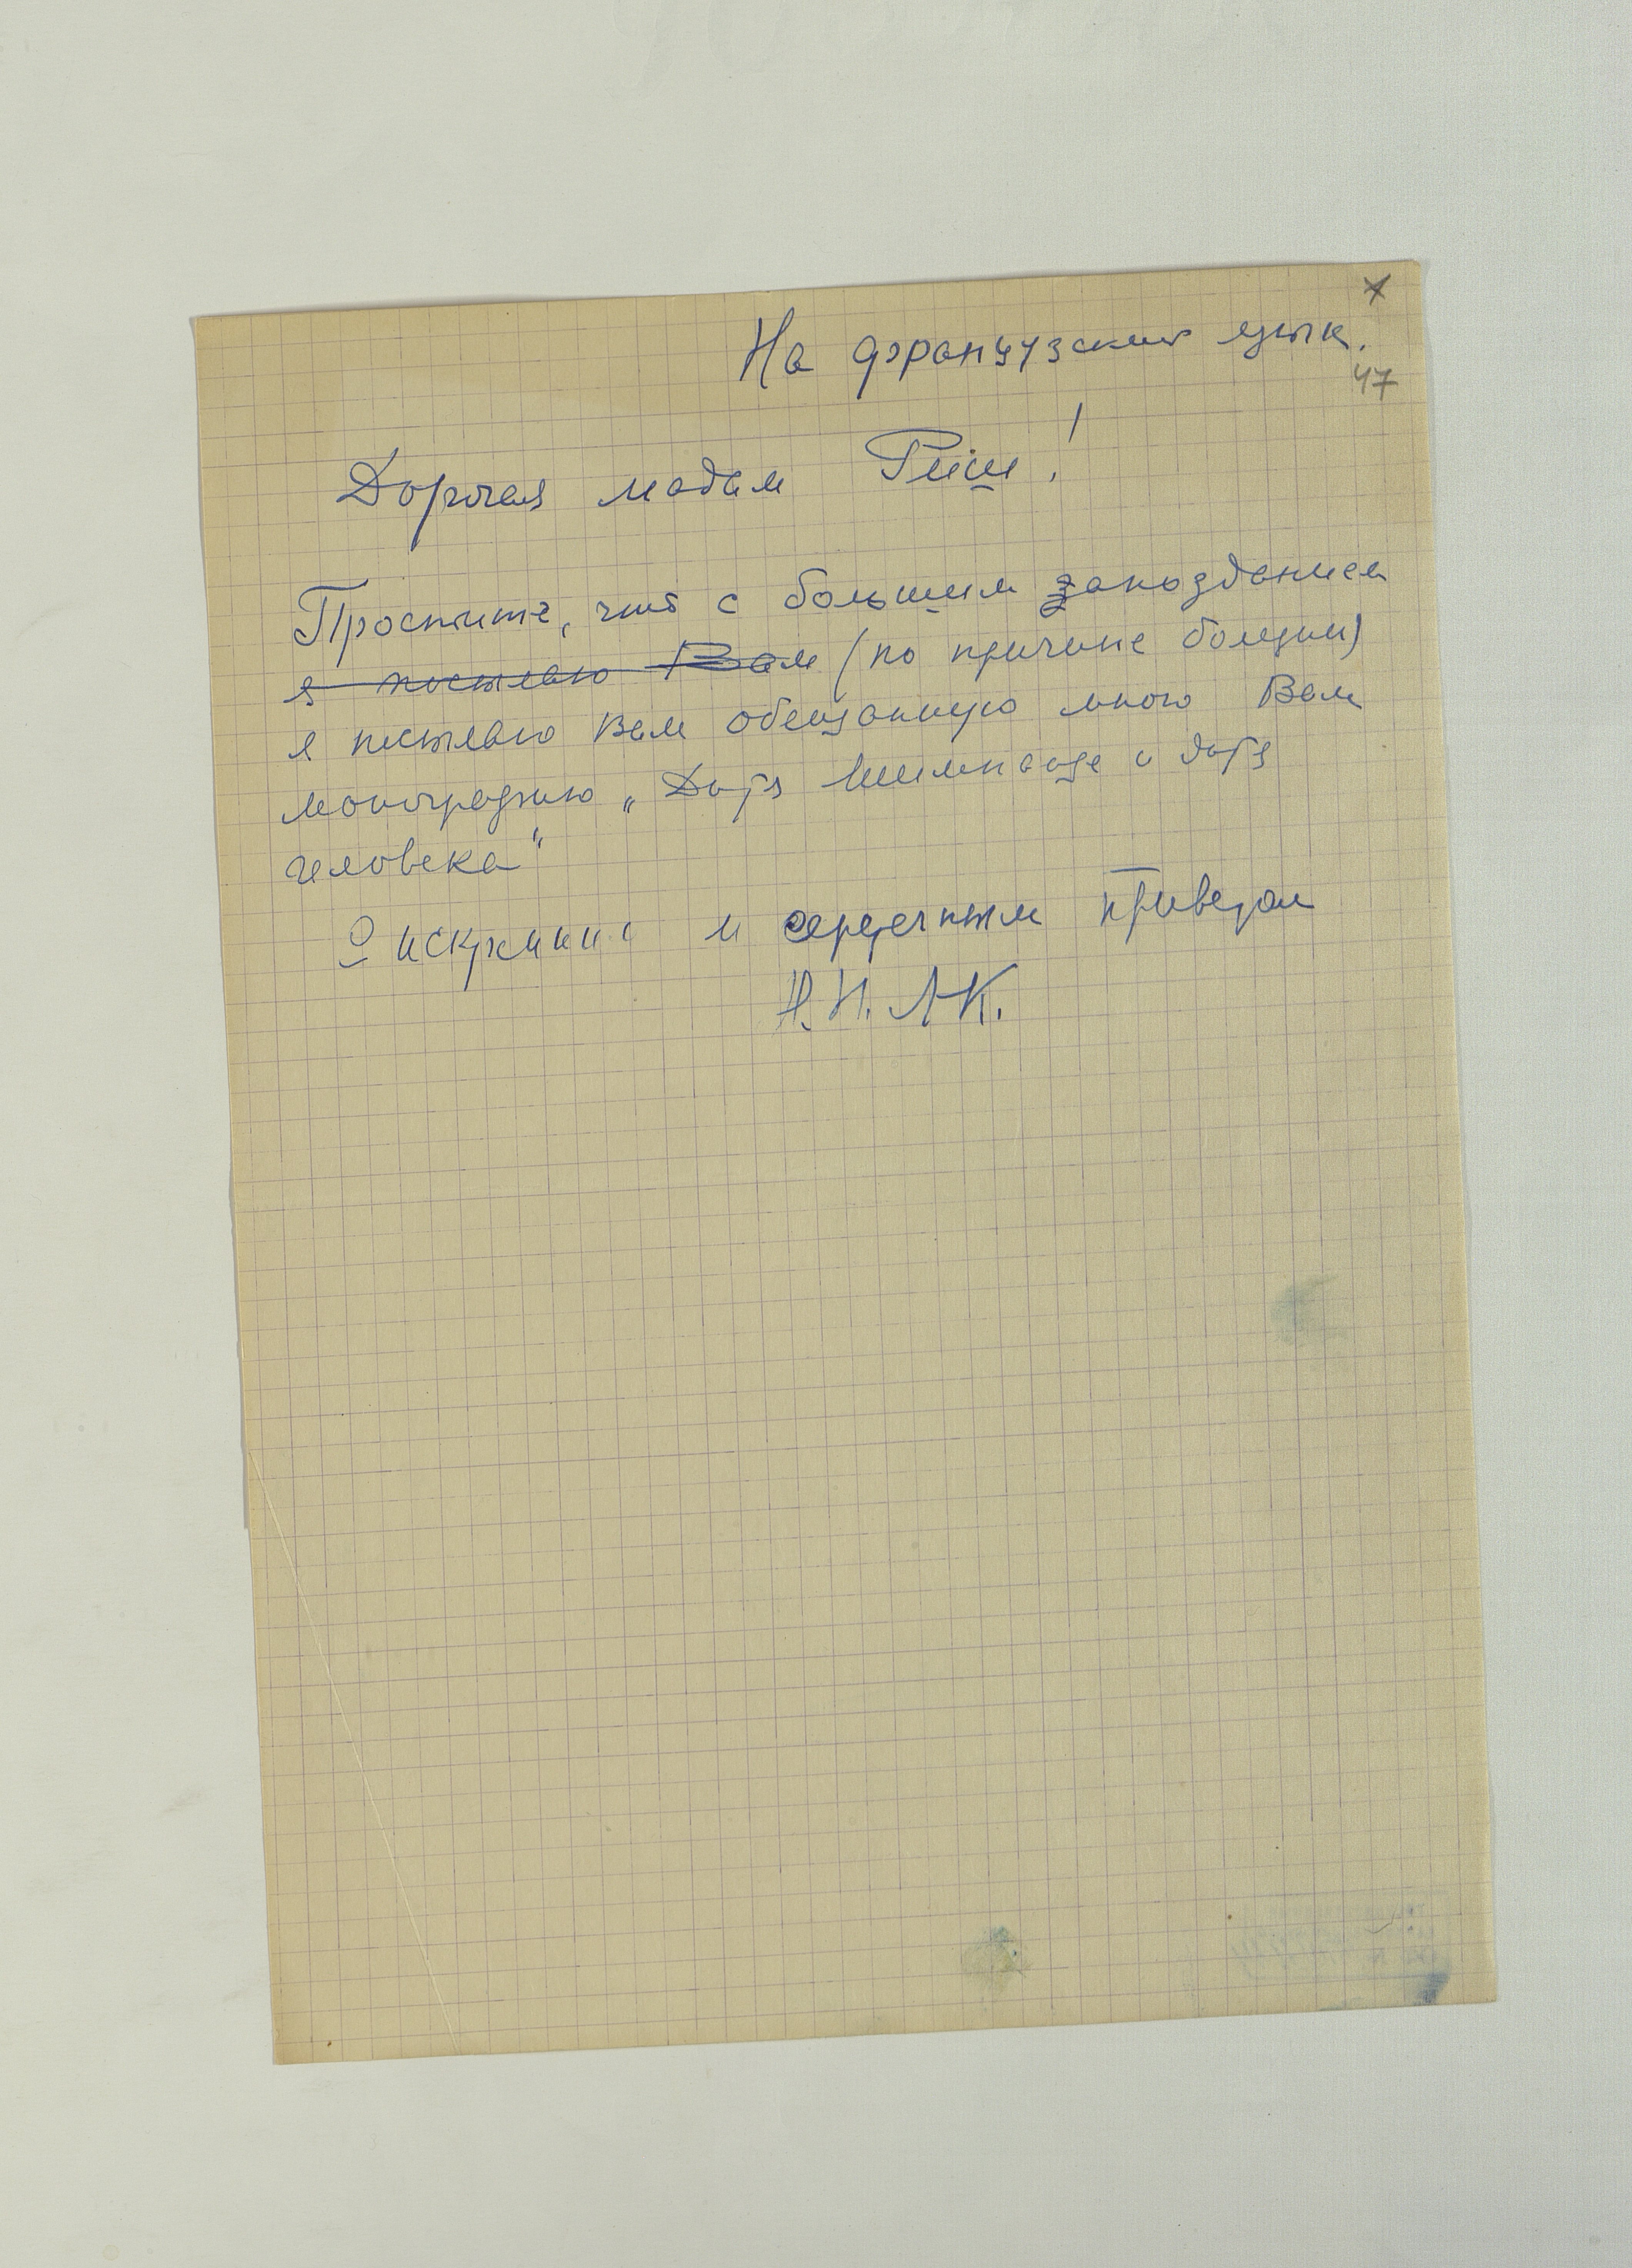 На французский язык.
47
Дорогая мадам Риш!
Простите, что с большим запозданием
я посылаю Вам (по причине болезни)
я посылаю Вам обещанную мною Вам
монографию „Дитя Шимпанзе и дитя
человека"
С искренним и сердечным приветом
Н.Н. Л-К.